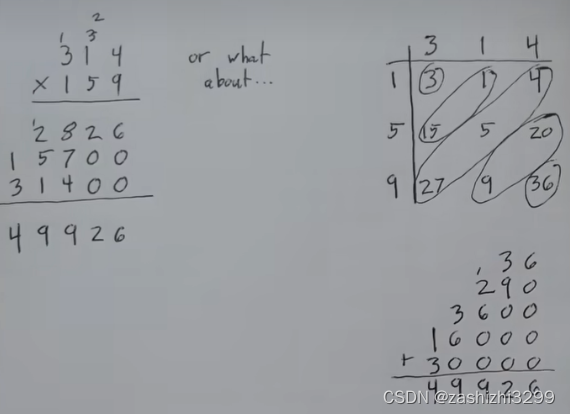 2
1 3
3 1 4
× 1 5 9
1
2 8 2 6
1 5 7 0 0
3 1 4 0 0
4 9 9 2 6
or what
about...
3 1 4
1 3 1 4
5 15 5 20
9 27 9 36
3 6
1
2 9 0
3 6 0 0
1 6 0 0 0
+ 3 0 0 0 0
4 9 9 2 6
CSDN @zashizhi3299